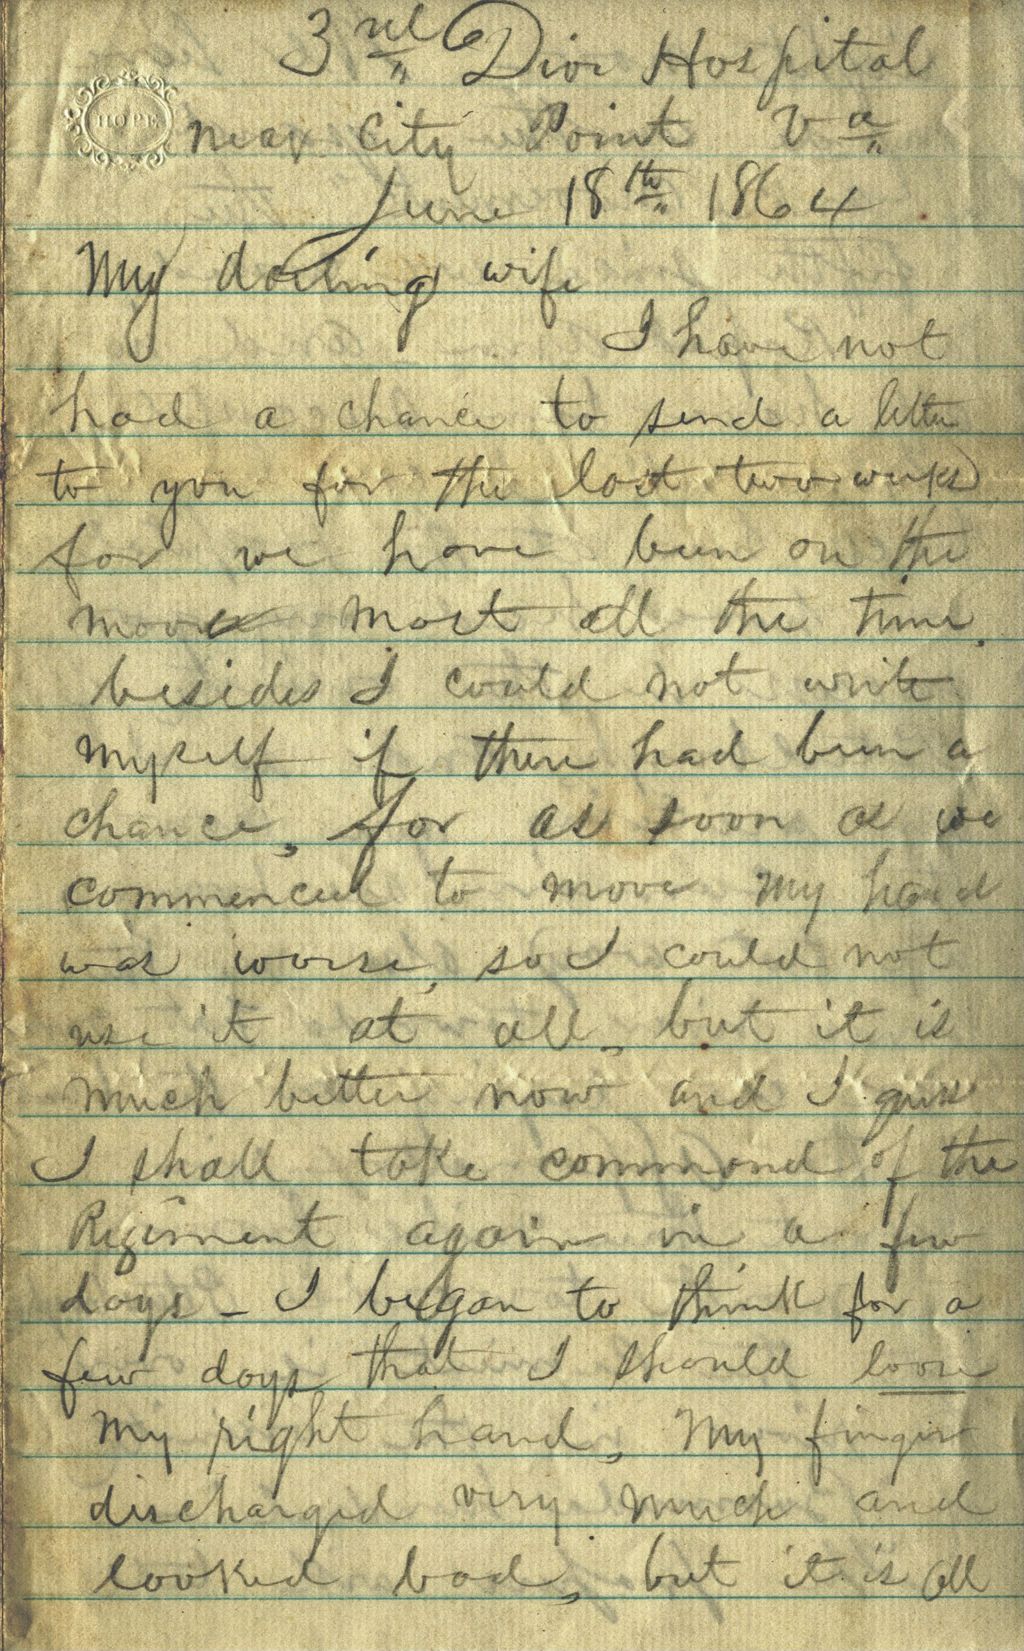 3rd Divi Hospital
HOPE
near City Point Va
June 18th 1864
My darling wife
I have not
had a chance to send a letter
to you for the last two weeks
for we have been on the
move most all the time
besides I could not write
myself if there had been a
chance, for as soon as we
commenced to move my hand
was worse, so I could not
use it at all, but it is
much better now and I guess
I shall take command of the
Regiment again in a few
days - I began to think for a
few days, that I should loose
my right hand, My finger
discharged very much and
looked bad, but it is all